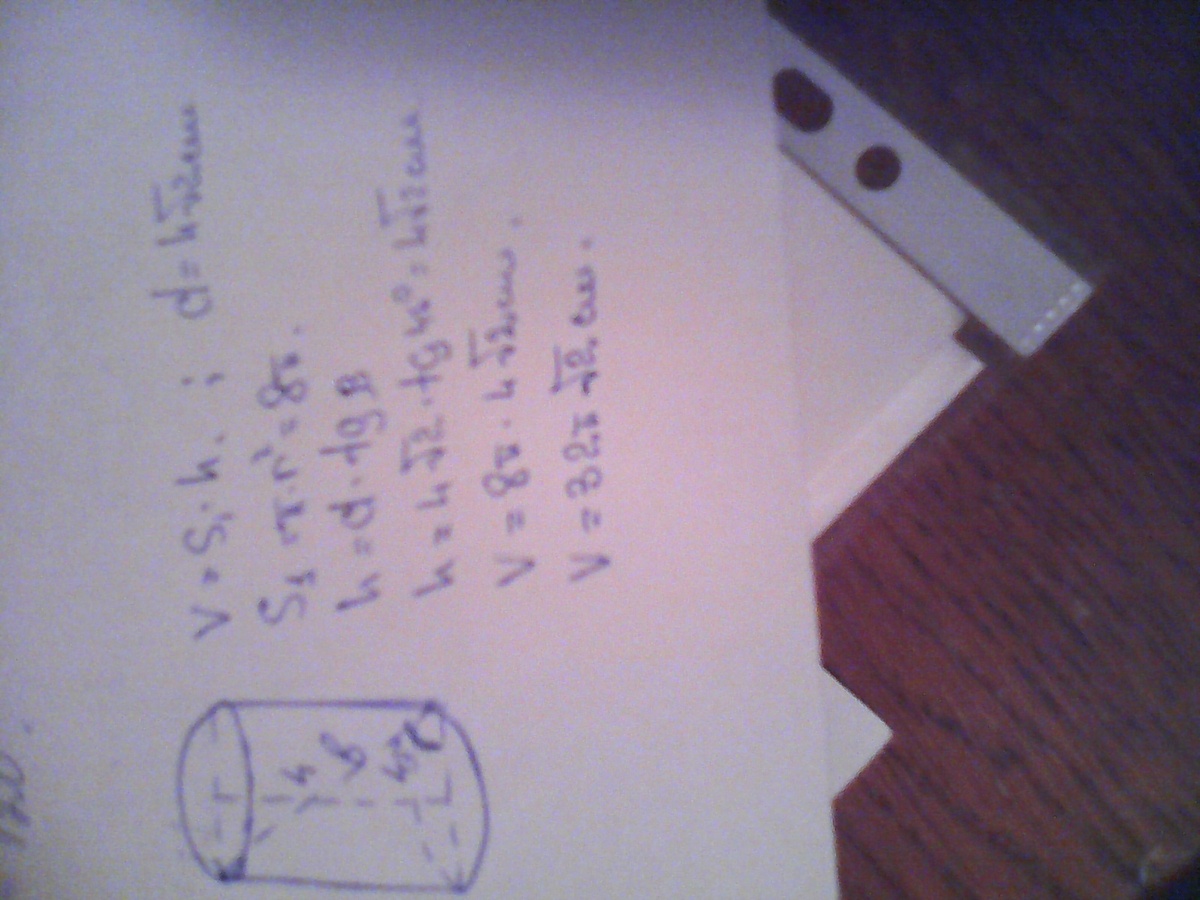 V = S₁ · h. ; d = 4√2см
S₁ = π · r² = 8π.
h = d · tg β
h = 4√2 · tg 45° = 4√2 см
V = 8π · 4√2 см.
V = 32π √2. см.
h
β
45°